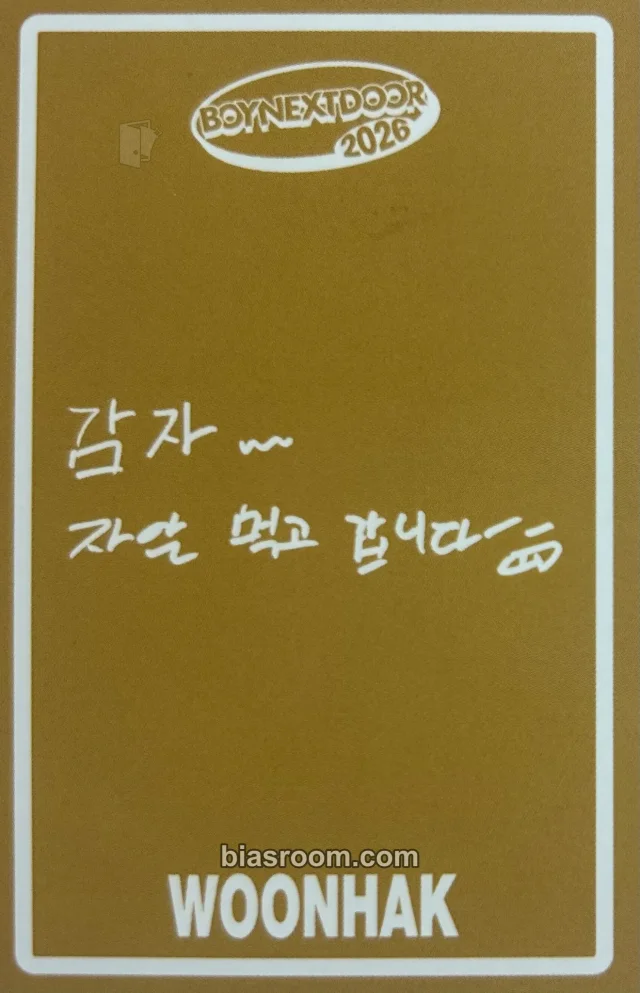 BOYNEXTDOOR
2026
감자~
자알 먹고 갑니다~
biasroom.com
WOONHAK